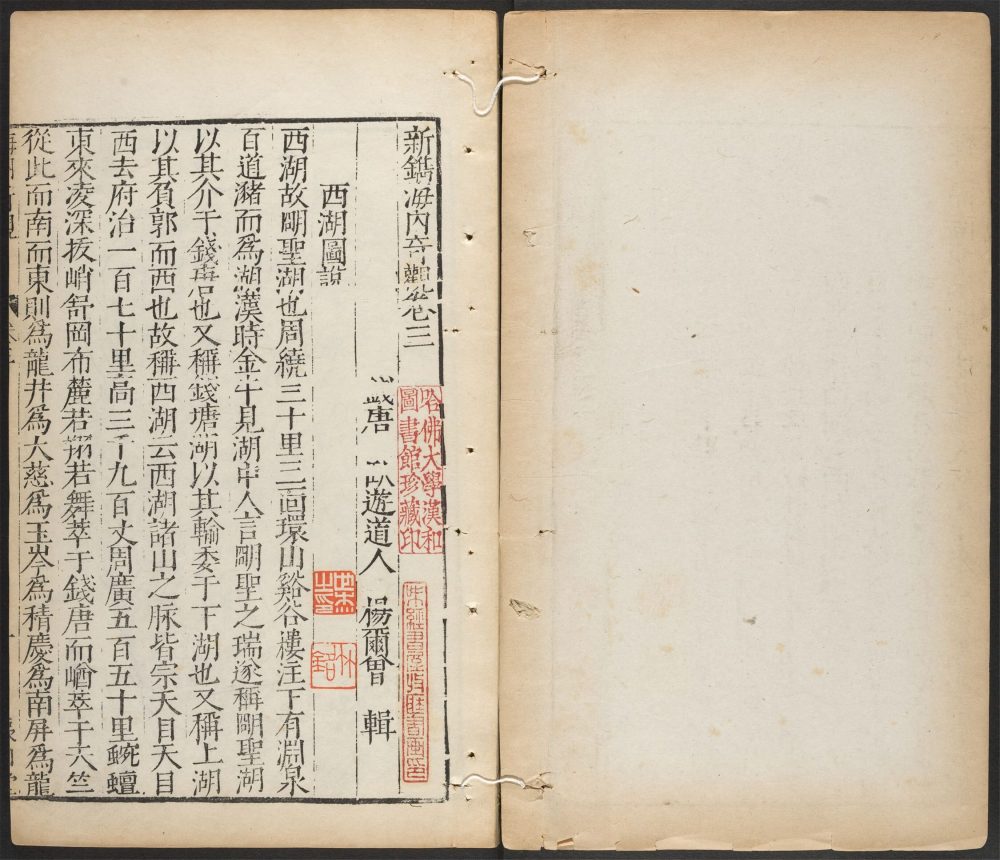 新鐫海內奇觀卷三
錢唐 臥遊道人 楊爾曾 輯
西湖圖說
西湖故明聖湖也周繞三十里三面環山谿谷縷注下有淵泉
百道瀦而爲湖漢時金牛見湖中人言明聖之瑞遂稱明聖湖
以其介于錢唐也又稱錢塘湖以其輸委于下湖也又稱上湖
以其負郭而西也故稱西湖云西湖諸山之脉皆宗天目天目
西去府治一百七十里高三千九百丈周廣五百五十里蜿蟺
東來凌深拔峭舒岡布麓若翔若舞萃于錢唐而崷崒于天竺
從此而南而東則爲龍井爲大慈爲玉岑爲積慶爲南屏爲龍
哈佛大學漢和
圖書館珍藏印